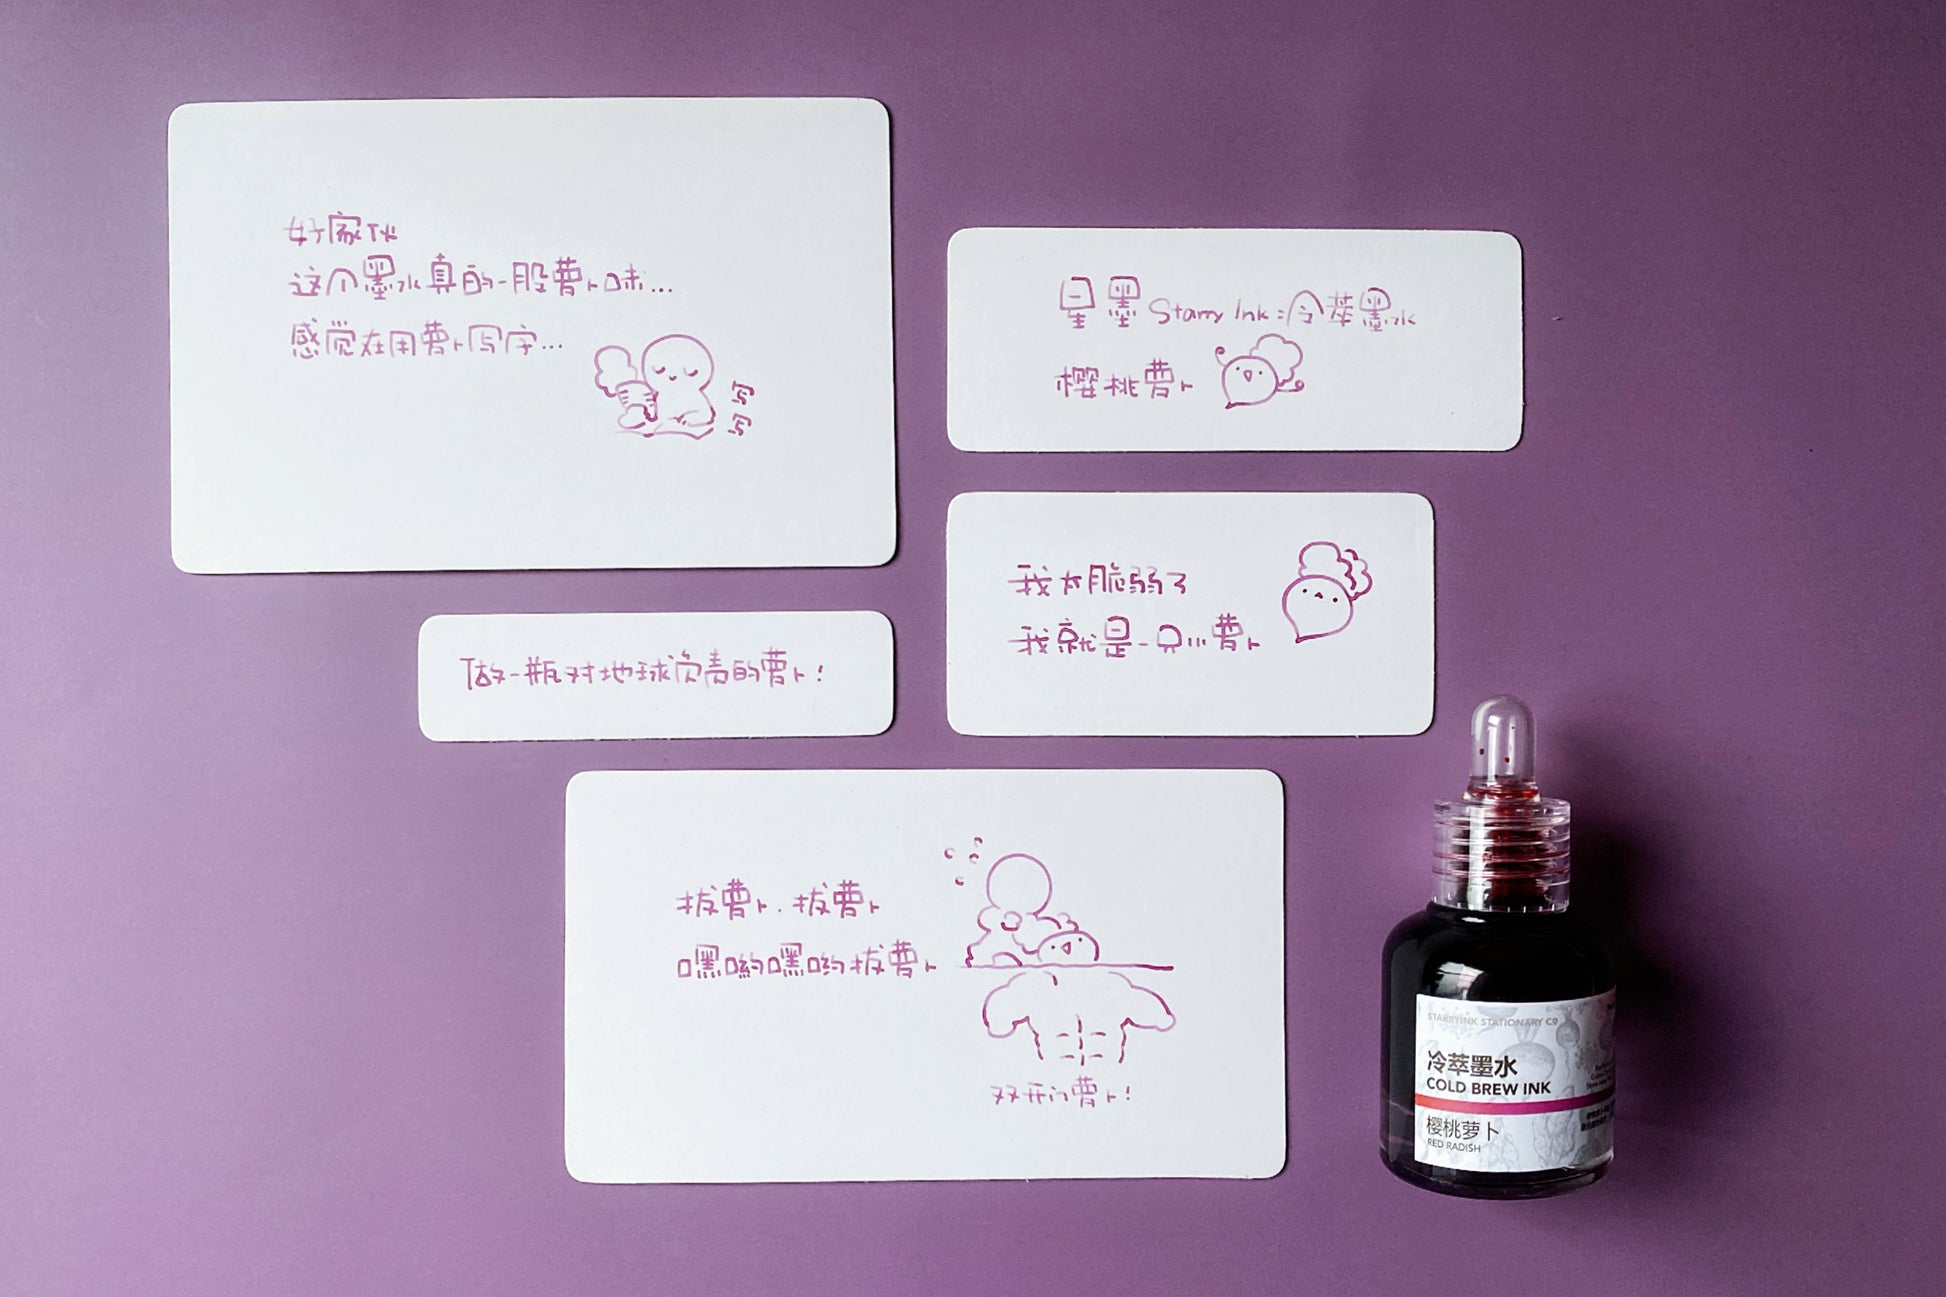 好家伙
这个墨水真的一股萝卜味...
感觉在用萝卜写字...
写
写
星墨 Starry Ink:冷萃墨水
樱桃萝卜
我太脆弱了
我就是一只小萝卜
做一瓶对地球负责的萝卜!
拔萝卜.拔萝卜
嘿哟嘿哟拔萝卜
双开门萝卜!
STARRYINK STATIONARY CO
冷萃墨水
COLD BREW INK
樱桃萝卜
RED RADISH